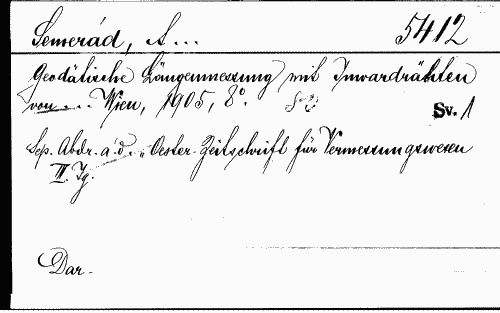 Semerád, A...
5412
Geodätische Längenmessung mit Invardrähten
von ... Wien, 1905, 8°.
Sv. 1
Sep. Abdr. a. d. Oester. Zeitschrift für Vermessungswesen
III. Jg.
Dar.